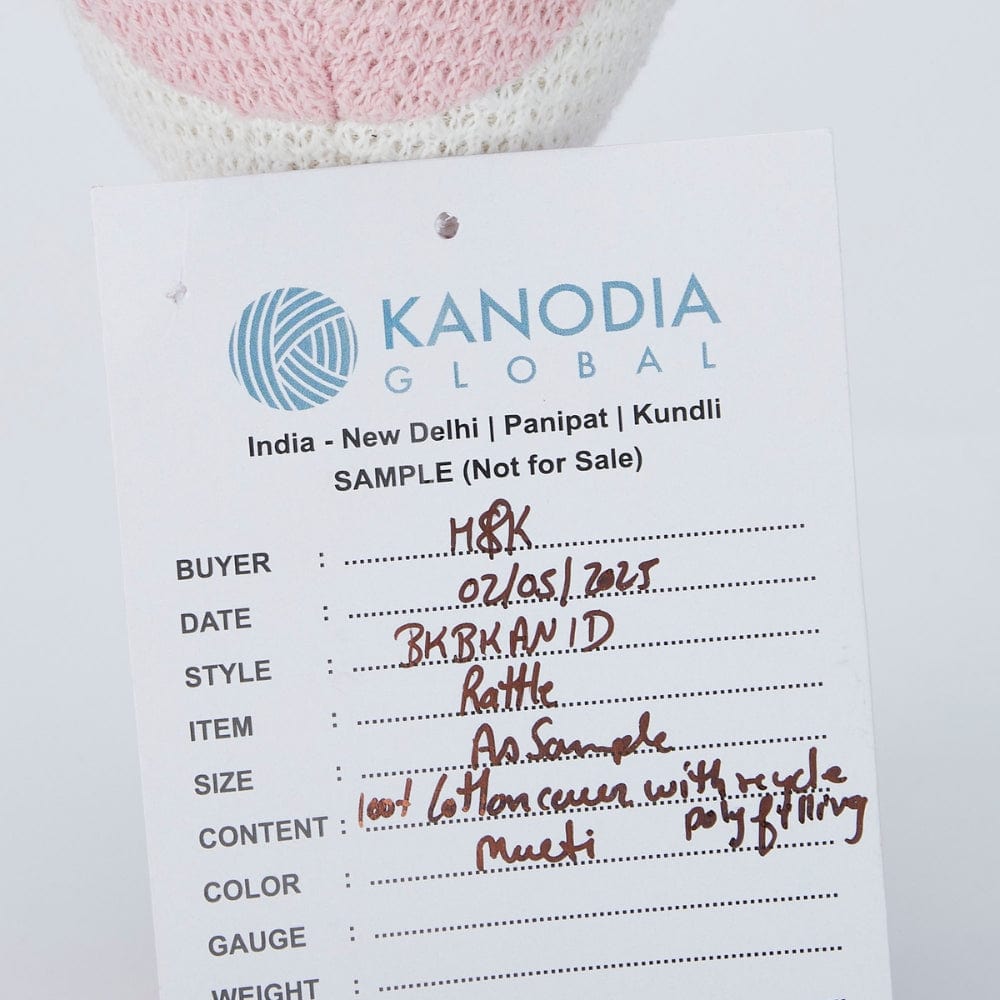 KANODIA
GLOBAL
India - New Delhi | Panipat | Kundli
SAMPLE (Not for Sale)
BUYER : H&K
DATE : 02/05/2025
STYLE : BKBKAN1D
ITEM : Rattle
SIZE : As Sample
CONTENT : 100% Cotton cover with recycle
poly filling
COLOR : Multi
GAUGE :
WEIGHT :